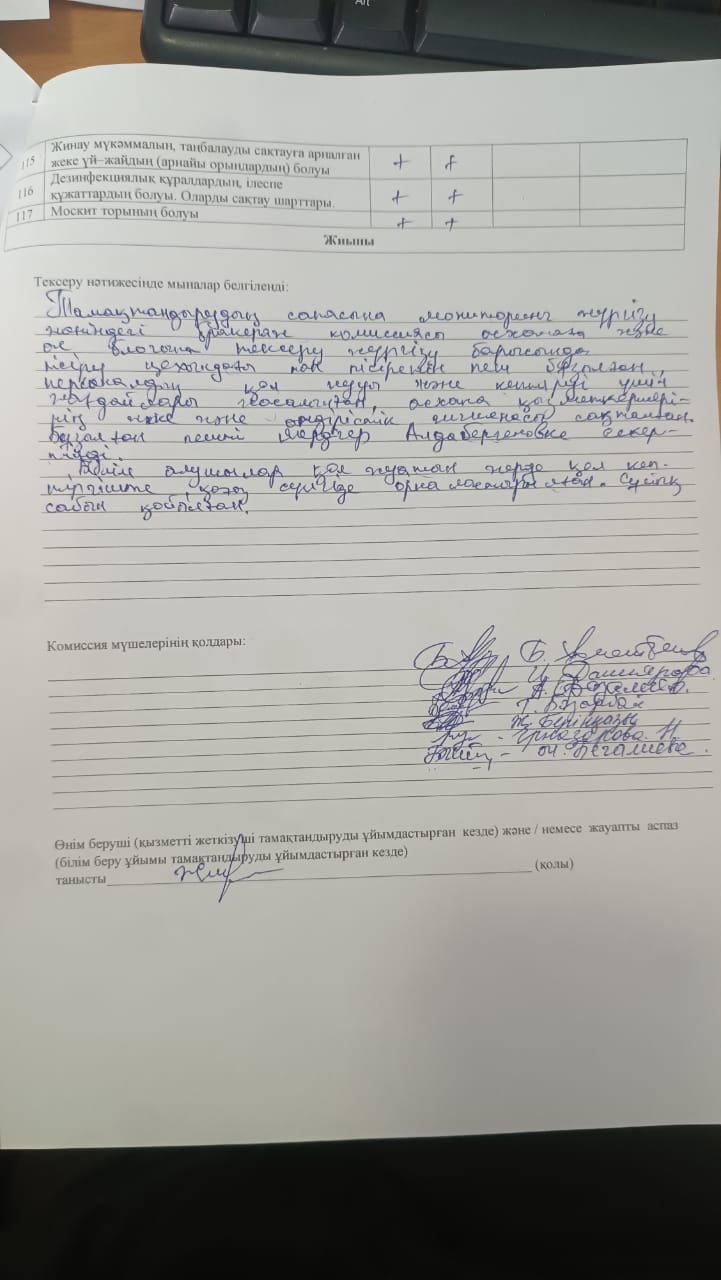 Alt
115 Жинау мүкәммалын, таңбалауды сақтауға арналған + +
жеке үй–жайдың (арнайы орындардың) болуы
116 Дезинфекциялық құралдардың, ілеспе + +
құжаттардың болуы. Оларды сақтау шарттары.
117 Москит торының болуы + +
Жиыны
Тексеру нәтижесінде мыналар белгіленді:
Тамақтандырудың сапасына мониторинг жүргізу
жөніндегі бракераж комиссиясы асханаға және
ас блогына тексеру жүргізу барысында
пісіру цехындағы нан пісіретін пеш бұзылған,
персоналдың қол жууы және кептіруі үшін
жағдайлары жасалынған, асхана қызметкерлері-
нің жеке және өндірістік гигиенасы сақталған.
Бұзылған пешті Алдабергеновке ескер-
тілді.
Білім алушылар қол жуатын жерде қол кеп-
тіргіште, қағаз сүлгіде орналастырылған. Сұйық
сабын қойылған.
Комиссия мүшелерінің қолдары:
Б.
Ж. Берінқазы
Ерназарова. Н.
Бегалиева.
Өнім беруші (қызметті жеткізуші тамақтандыруды ұйымдастырған кезде) және / немесе жауапты аспаз
(білім беру ұйымы тамақтандыруды ұйымдастырған кезде)
танысты (қолы)